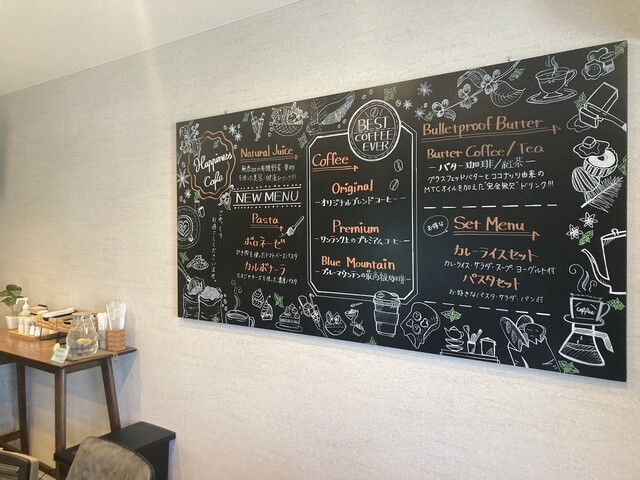 Happiness
Cafe
ごゆっくり
お過ごしくださいませ
Natural Juice
NEW MENU
Pasta
ボロネーゼ
カルボナーラ
BEST
COFFEE
EVER
Coffee
Original
ーオリジナルブレンドコーヒーー
Premium
ーワンランク上のプレミアムコーヒーー
Blue Mountain
ーブルーマウンテンの最高級珈琲ー
Bulletproof Butter
Butter Coffee/Tea
ーバター珈琲/紅茶ー
グラスフェッドバターとココナッツ由来の
MTCオイルを加えた"完全無欠"ドリンク!!!
お得な
Set Menu
カレーライスセット
カレーライス・サラダ・スープ・ヨーグルト付
パスタセット
お好きなパスタ・サラダ・パン付
Coffee